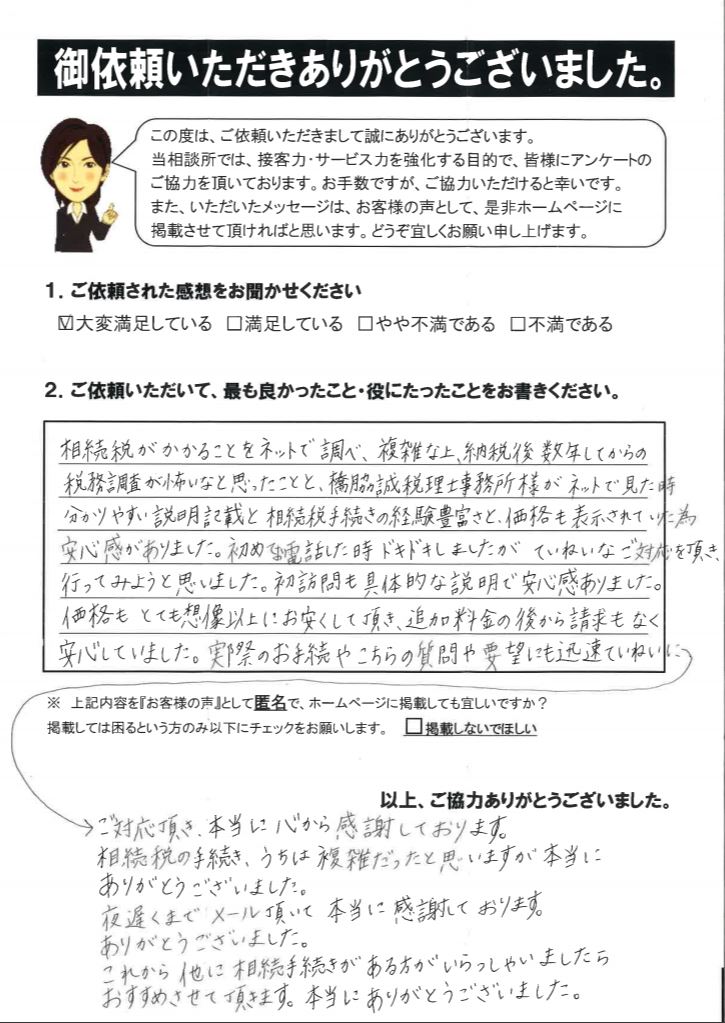 御依頼いただきありがとうございました。
この度は、ご依頼いただきまして誠にありがとうございます。
当相談所では、接客力・サービス力を強化する目的で、皆様にアンケートの
ご協力を頂いております。お手数ですが、ご協力いただけると幸いです。
また、いただいたメッセージは、お客様の声として、是非ホームページに
掲載させて頂ければと思います。どうぞ宜しくお願い申し上げます。
1. ご依頼された感想をお聞かせください
☑大変満足している □満足している □やや不満である □不満である
2. ご依頼いただいて、最も良かったこと・役にたったことをお書きください。
相続税がかかることをネットで調べ、複雑な上、納税後数年してからの
税務調査が怖いなと思ったことと、橋脇誠税理士事務所様がネットで見た時
分かりやすい説明記載と相続税手続きの経験豊富さと、価格も表示されていた為
安心感がありました。初めてお電話した時ドキドキしましたがていねいなご対応を頂き、
行ってみようと思いました。初訪問も具体的な説明で安心感ありました。
価格もとても想像以上にお安くして頂き、追加料金の後から請求もなく
安心していました。実際のお手続やこちらの質問や要望にも迅速ていねいに
※ 上記内容を『お客様の声』として匿名で、ホームページに掲載しても宜しいですか？
掲載しては困るという方のみ以下にチェックをお願いします。 □掲載しないでほしい
以上、ご協力ありがとうございました。
→ご対応頂き、本当に心から感謝しております。
相続税の手続き、うちは複雑だったと思いますが本当に
ありがとうございました。
夜遅くまでメール頂いて本当に感謝しております。
ありがとうございました。
これから他に相続手続きがある方がいらっしゃいましたら
おすすめさせて頂きます。本当にありがとうございました。